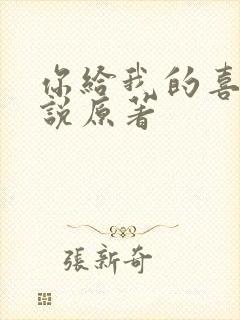 你給我的喜
說原著
張新奇